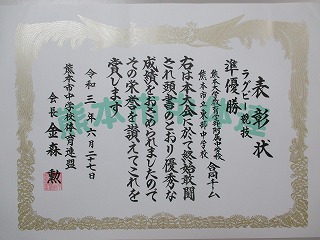 表彰状
ラグビー競技
準優勝
熊本大学教育学部附属中学校
熊本市立東部中学校
合同チーム
右は本大会に於て終始敢闘
され頭書のとおり優秀な
成績をおさめられましたので
その栄誉を讃えてこれを
賞します
令和三年六月二十七日
熊本市中学校体育連盟
会長 金森 勲